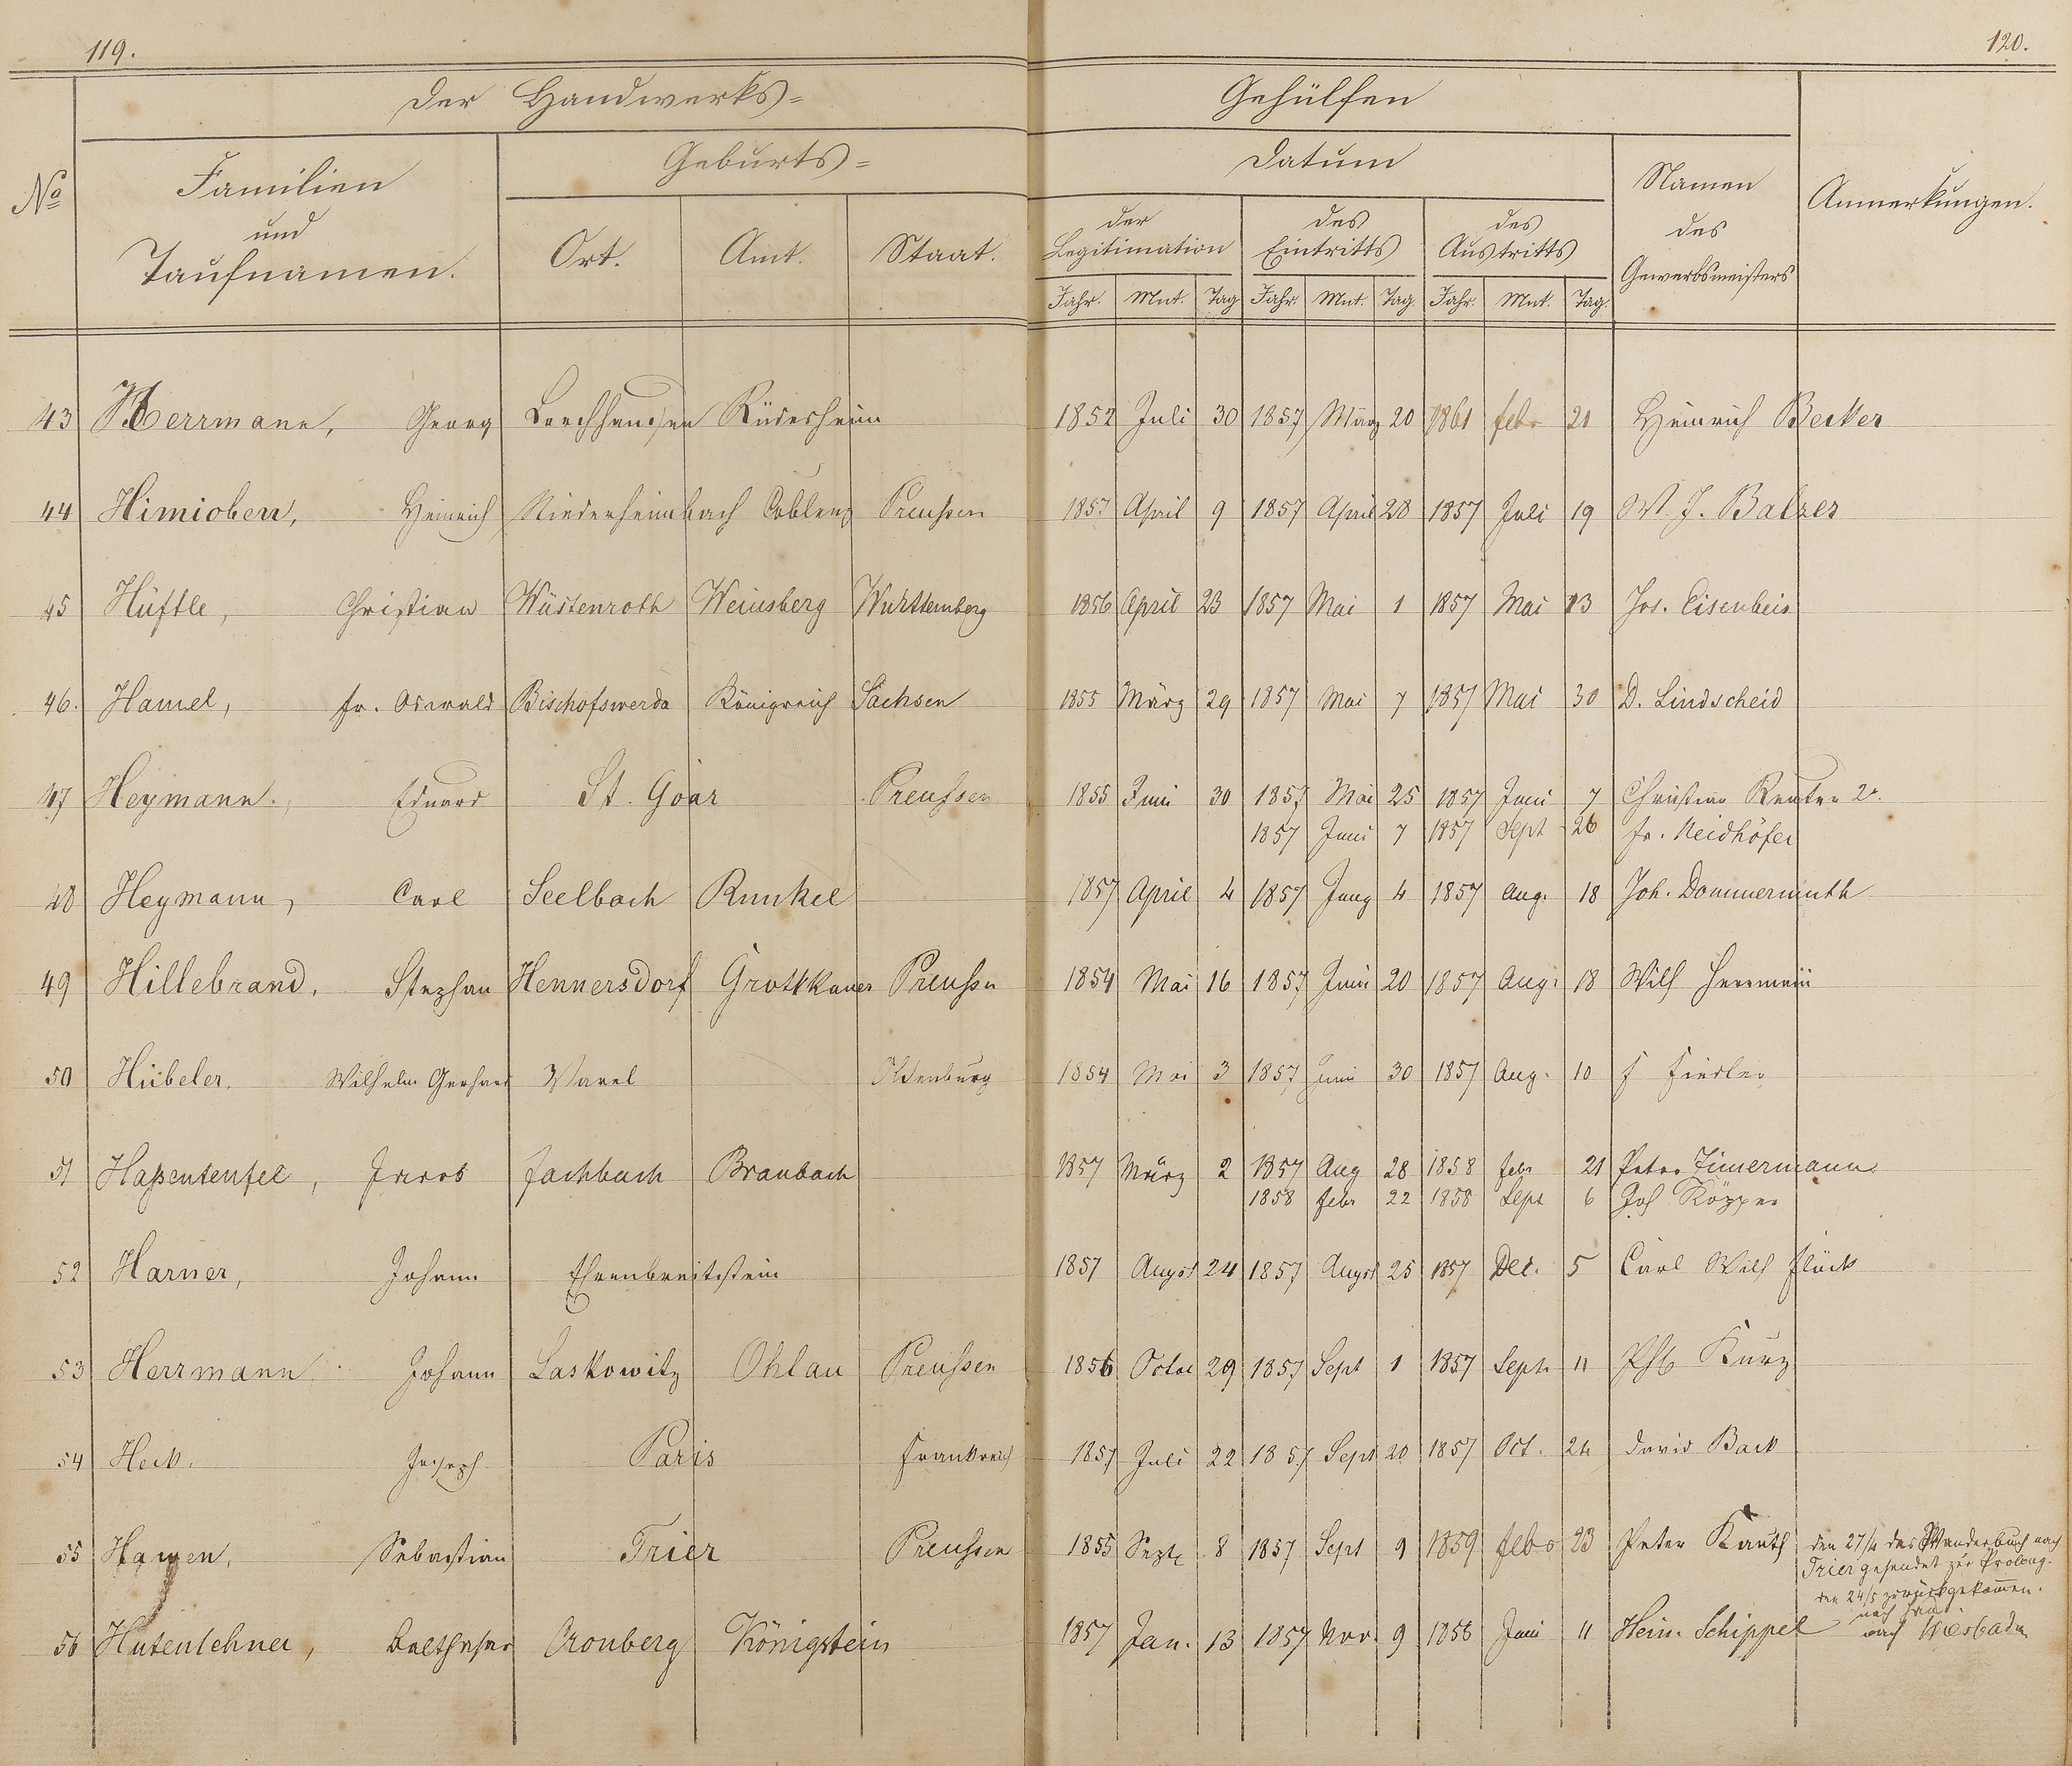 119.
120.
Der Handwerks=
Gehülfen
No
Familien
und
Taufnamen.
Geburts=
Ort.
Amt.
Staat.
Datum
der
Legitimation
des
Eintritts
des
Austritts
Jahr. Mnt. Tag Jahr. Mnt. Tag. Jahr. Mnt. Tag.
Namen
des
Gewerbsmeisters
Anmerkungen.
43 Herrmann, Georg Lorchhausen Rüdesheim 1852 Juli 30 1857 März 20 1861 febr 21 Heinrich Becker
44 Himioben, Heinrich Niederheimbach Coblenz Preußen 1857 April 9 1857 April 28 1857 Juli 19 W. J. Balzer
45 Hüftle, Christian Wüstenroth Weinsberg Württemberg 1856 April 23 1857 Mai 1 1857 Mai 13 Jos. Eisenbeis
46. Hamel, fr. Oswald Bischofswerda Königreich Sachsen 1855 März 29 1857 Mai 7 1857 Mai 30 D. Lindscheid
47 Heymann, Eduard St. Goar Preußen 1855 Juni 30 1857 Mai 25 1857 Juni 7 Christian Reuter 2r.
1857 Juni 7 1857 Sept 26 fr. Neidhöfer
48 Heymann, Carl Seelbach Runkel 1857 April 4 1857 Juny 4 1857 Aug. 18 Joh. Dommermuth
49 Hillebrand, Stephan Hennersdorf Grottkauer Preußen 1854 Mai 16 1857 Juni 20 1857 Aug. 18 Wilh Herrmann
50 Hübeler, Wilhelm Gerhard Varel Oldenburg 1854 Mai 3 1857 Juni 30 1857 Aug. 10 f Fiedler
51 Haßenteufel, Jacob fachbach Braubach 1857 März 2 1857 Aug 28 1858 febr 21 Peter Zimermann
1858 febr 22 1858 Sept 6 Joh Köpper
52 Harner, Johann Ehrenbreitstein 1857 Augst 24 1857 Augst 25 1857 Dec. 5 Carl Wilh flöck
53 Herrmann Johann Laskowitz Ohlau Preußen 1856 Octbr 29 1857 Sept 1 1857 Sept. 11 Phb Kurz
54 Heck. Joseph Paris Frankreich 1857 Juli 22 1857 Sept 20 1857 Oct. 24 David Back
55 Hamen, Sebastian Trier Preußen 1855 Sept. 8 1857 Sept 9 1859 febr 23 Peter Kauth
den 27/4 das Wanderbuch nach
Trier gesendet zur Prolong.
den 24/5 zurückgekommen.
56 Hutenlehner, Balthasar Cronberg Königstein 1857 Jan. 13 1857 Nov. 9 1858 Juni 11 Hein. Schippel
nach Wiesbaden